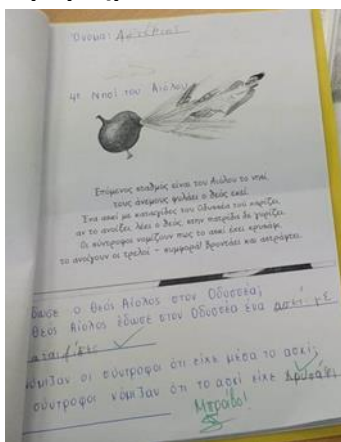 Όνομα: Ασκέπιος
4η Νησί του Αιόλου
Επόμενος σταθμός είναι του Αιόλου το νησί,
τους ανέμους φυλάει ο θεός εκεί.
Ένα ασκί με καταιγίδες του Οδυσσέα τού χαρίζει,
αν το ανοίξει, λέει ο θεός, στην πατρίδα δε γυρίζει.
Οι σύντροφοι νομίζουν πως το ασκί έχει χρυσάφι,
το ανοίγουν οι τρελοί – συμφορά! Βροντάει και αστράφτει.
έδωσε ο θεός Αίολος στον Οδυσσέα;
θεός Αίολος έδωσε στον Οδυσσέα ένα ασκί με
καταιγίδες
νόμιζαν οι σύντροφοι ότι είχε μέσα το ασκί;
σύντροφοι νόμιζαν ότι το ασκί είχε χρυσάφι
Μπράβο!